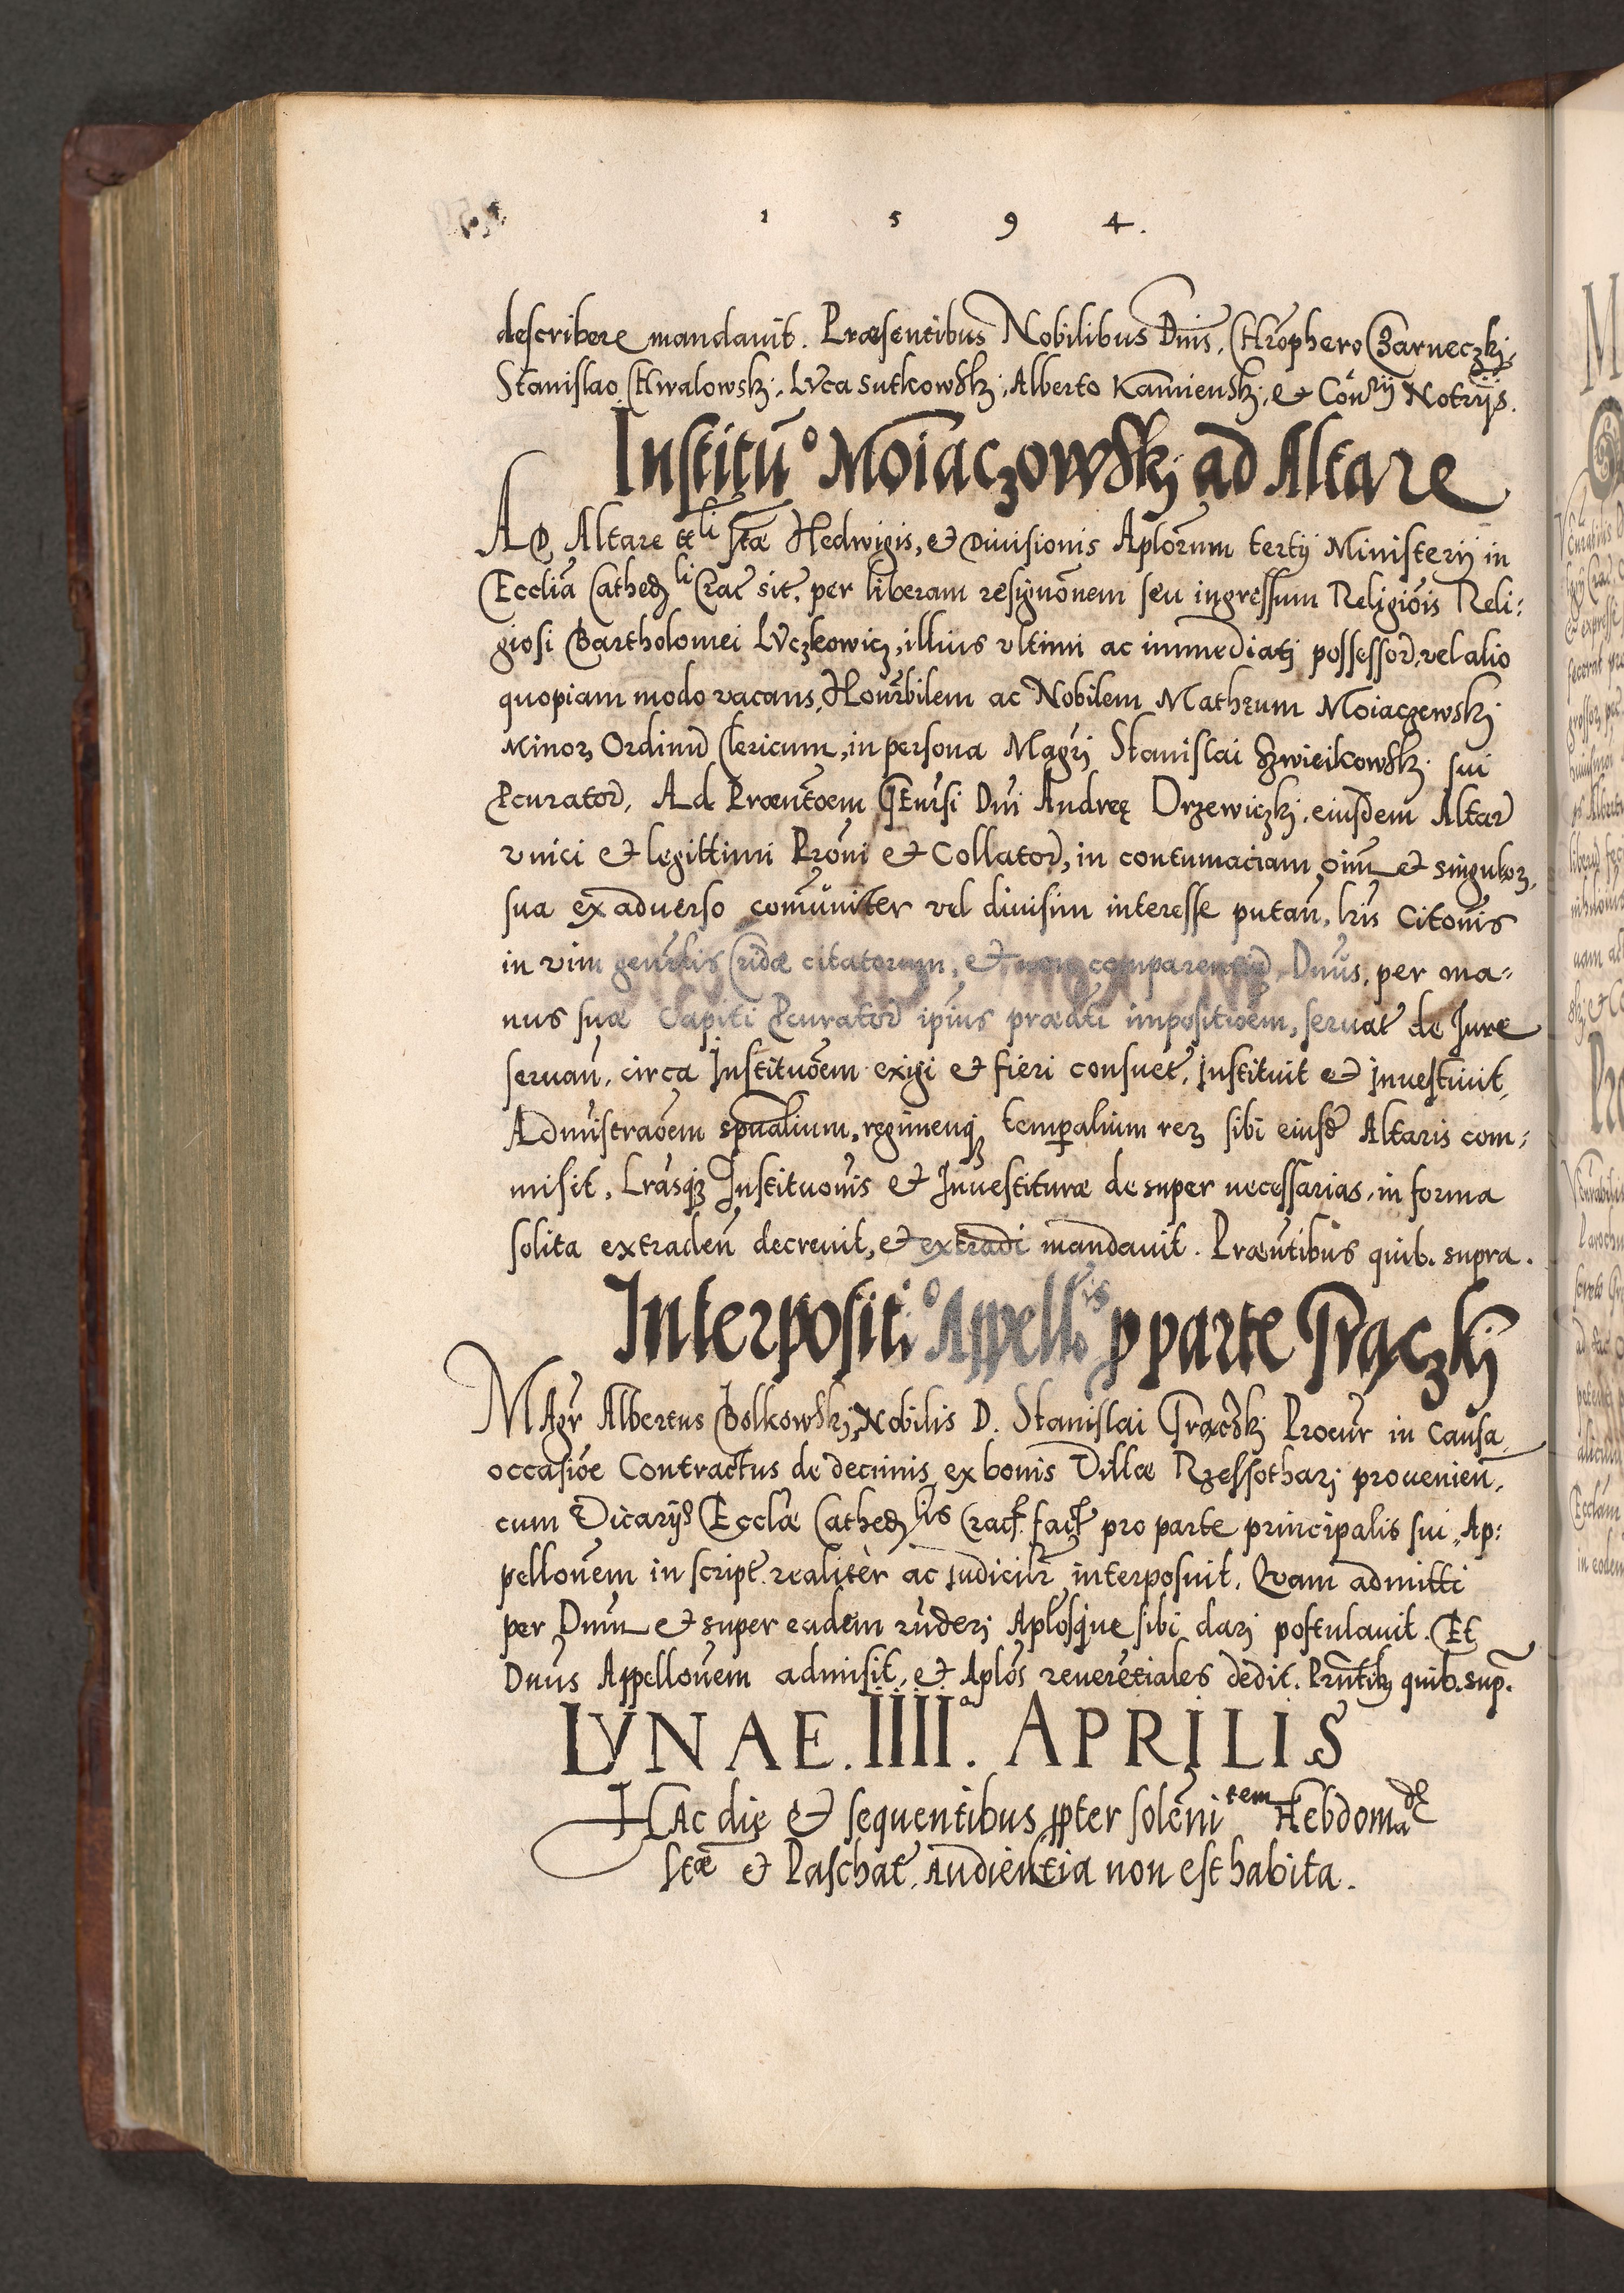 1 5 9 4.
describere mandauit. Præsentibus Nobilibus Dnis, Chrõphero Czarneczkj,
Stanislao Chwalowskj, Lvca Sutkowskj, Alberto Kamienskj, et Cõnrij Notrijs.
Institũo Moiaczowskj ad Altare
AD Altare ttli Stæ Hedwigis, et Diuisionis Aplorum tertij Ministerij in
Eccliã Cathedli Crac sit. per liberam resignõnem seu ingressum Religiõis Reli:
giosi Bartholomei Lvczkowicz, illius vltimi ac immediatj possessor, vel alio
quopiam modo vacans, Honrbilem ac Nobilem Matheum Moiaczewskj
Minorz Ordinũ Clericum, in persona Magrj Stanislai Szwieikowskj sui
Pcurator, Ad Præntõem Gñrsi Dni Andreę Drzewiczkj, eiusdem Altar
vnici et legittimi Prõni et Collator, in contumaciam oim̃ et singulorz,
sua ex aduerso comũniter vel diuisim interesse putañ, lris Citõnis
in vim genrlis Cridæ citatorum, et non comparentiũ, Dnus, per ma-
nus suæ Capiti Pcurator ipius prædti impositiõem, seruat de Jure
seruañ. circa Institvõem exigi et fieri consuet, Instituit et Inuestiuit,
Admistraõem spũalium, regimenq temporalium rerz sibi eiusd Altaris com-
misit, Lrasq Institvonis et Inuestituræ desuper necessarias, in forma
solita extradeñ decreuit, et extradi mandauit. Præntibus quib. supra.
Interposit:o Appellonis p parte Grączkj
MAgr Albertus Bolkowskj, Nobilis D. Stanislai Grączkj Procur in Causa
occasiõe Contractus de decimis ex bonis Villæ Rzessotharj prouenieñ,
cum Vicarijs Ecclæ Cathedlis Crac. fact pro parte principalis sui, Ap:
pellonem in script. realitèr ac judicilr interposuit. Qvam admitti
per Dnum et super eadem rnderj Aplosque sibi darj postulauit. Et
Dnus Appellonem admisit, et Aplos reueretiales dedit. Prntibz quib. sup.
LVNAE. IIIIa. APRILIS
HAc die et sequentibus ppter solẽnitem Hebdomadæ
Stæ et Paschat, Audientia non est habita.